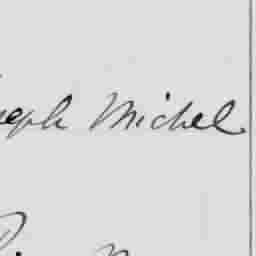 seph Michel